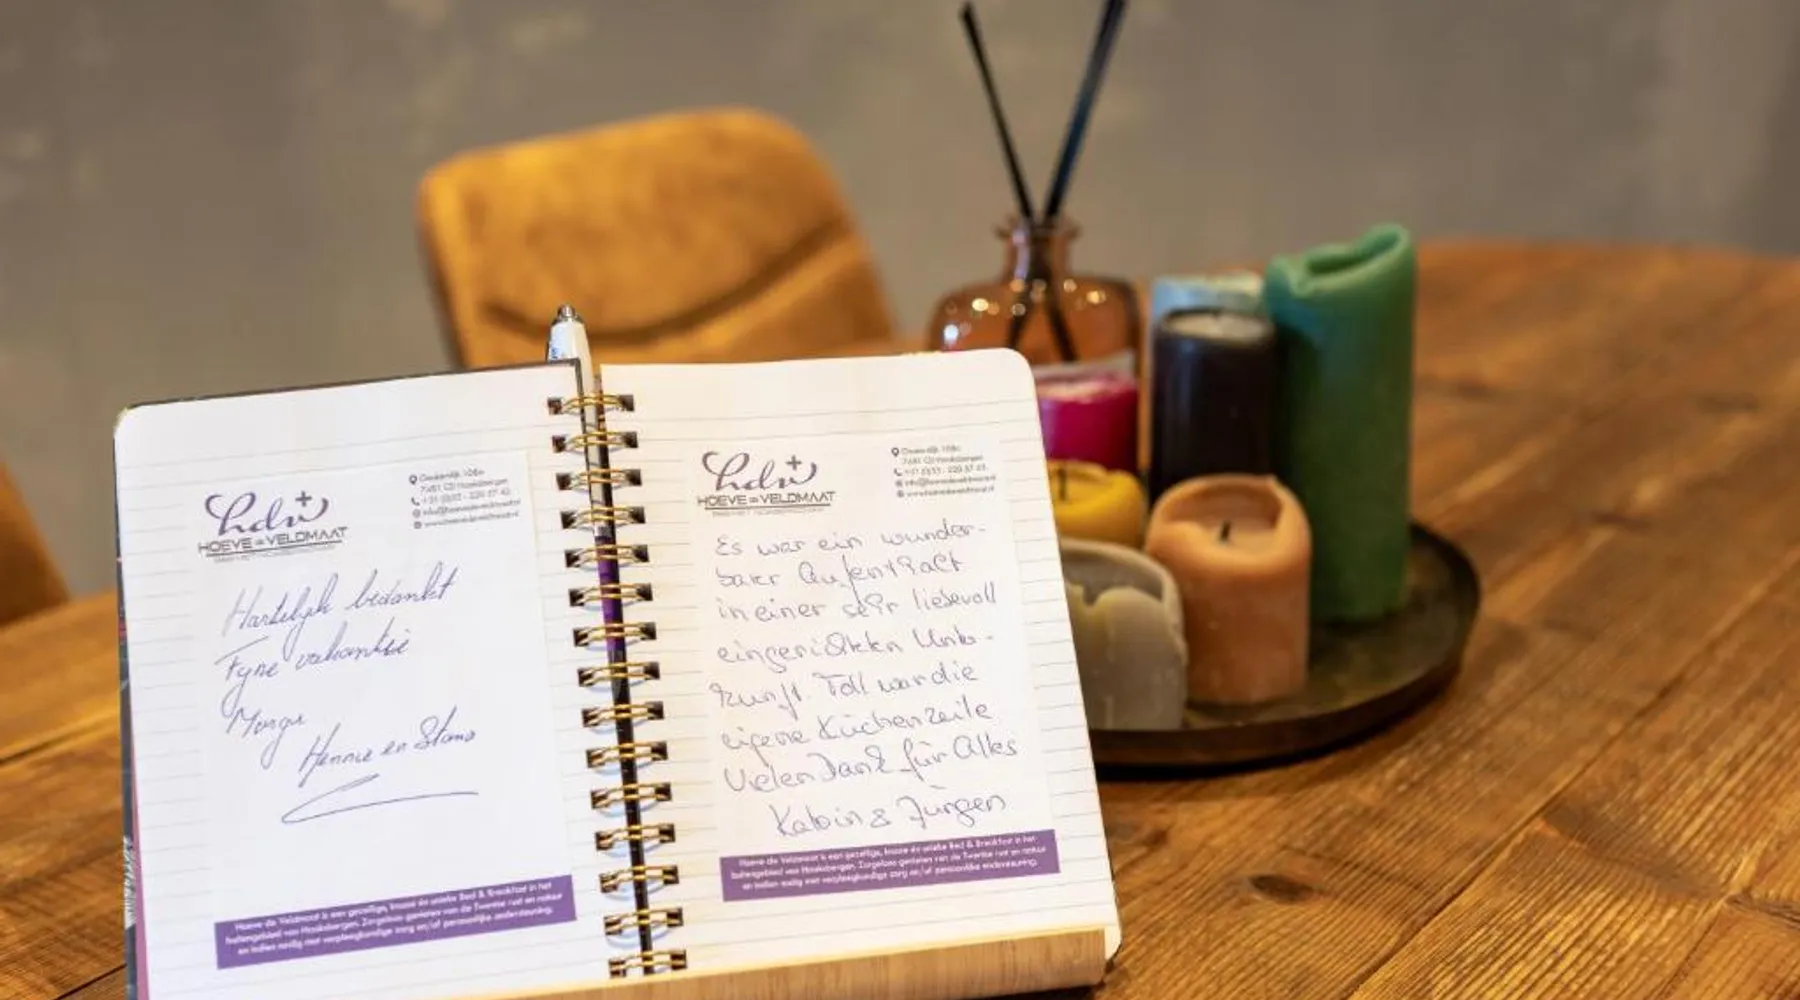 hdv+
HOEVE de VELDMAAT
7481
info@hoevedeveldmaat.nl
www.hoevedeveldmaat.nl
Hartelijk bedankt
Fijne vakantie
Hennie en
Hoeve de Veldmaat is een gezellige, knusse én unieke Bed & Breakfast in het
buitengebied van Haaksbergen. Zorgeloos genieten van de Twentse rust en natuur
en indien nodig met verpleegkundige zorg en/of persoonlijke ondersteuning.
hdv+
HOEVE de VELDMAAT
7481
www.hoevedeveldmaat.nl
Es war ein wunder-
barer Aufenthalt
in einer sehr liebevoll
eingerichteten Unter-
kunft. Toll war die
eigene Küchenzeile
Vielen Dank für Alles
& Jürgen
Hoeve de Veldmaat is een gezellige, knusse én unieke Bed & Breakfast in het
buitengebied van Haaksbergen. Zorgeloos genieten van de Twentse rust en natuur
en indien nodig met verpleegkundige zorg en/of persoonlijke ondersteuning.